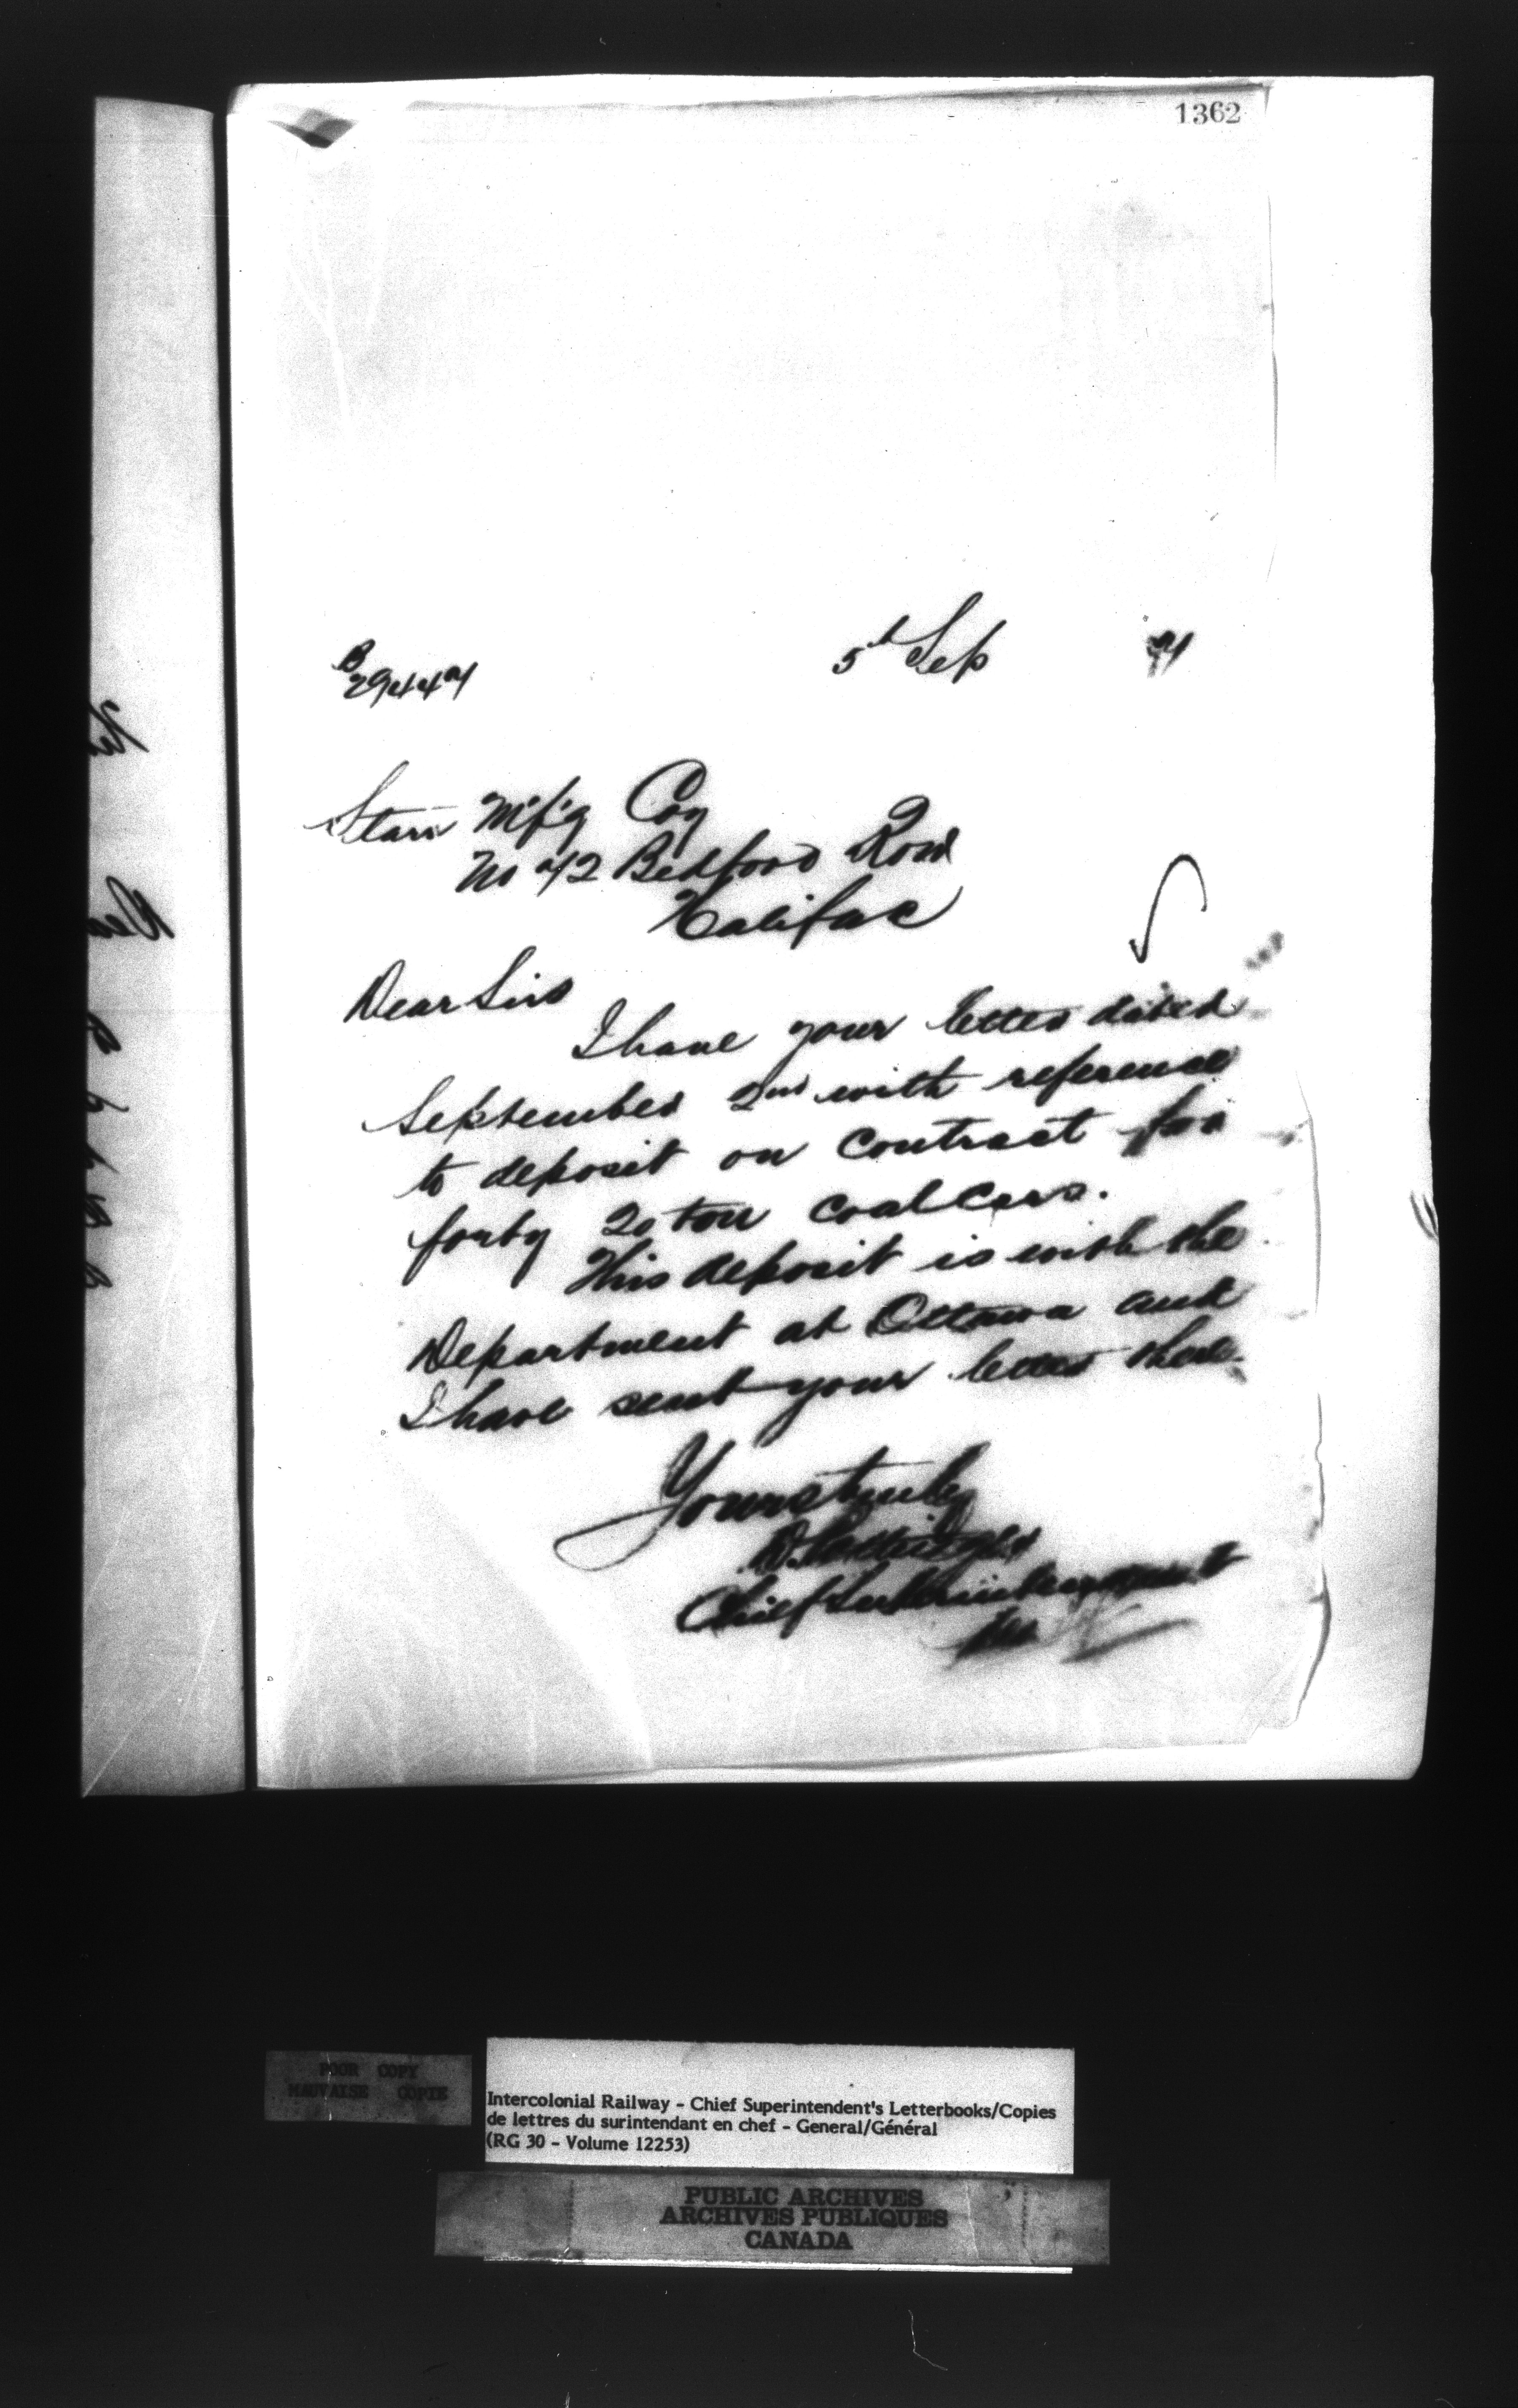 1362
5th Sep
B
Starr M'f'g Coy
No 72 Bedford Row
Halifax
Dear Sirs
I have your letter dated
September 2nd with reference
to deposit on contract for
forty 20 ton coal cars.
This deposit is with the
Department at Ottawa and
I have sent your letter there.
Yours truly
D. Pottinger
Chief Superintendent
POOR COPY
MAUVAISE COPIE
Intercolonial Railway - Chief Superintendent's Letterbooks/Copies
de lettres du surintendant en chef - General/Général
(RG 30 - Volume 12253)
PUBLIC ARCHIVES
ARCHIVES PUBLIQUES
CANADA